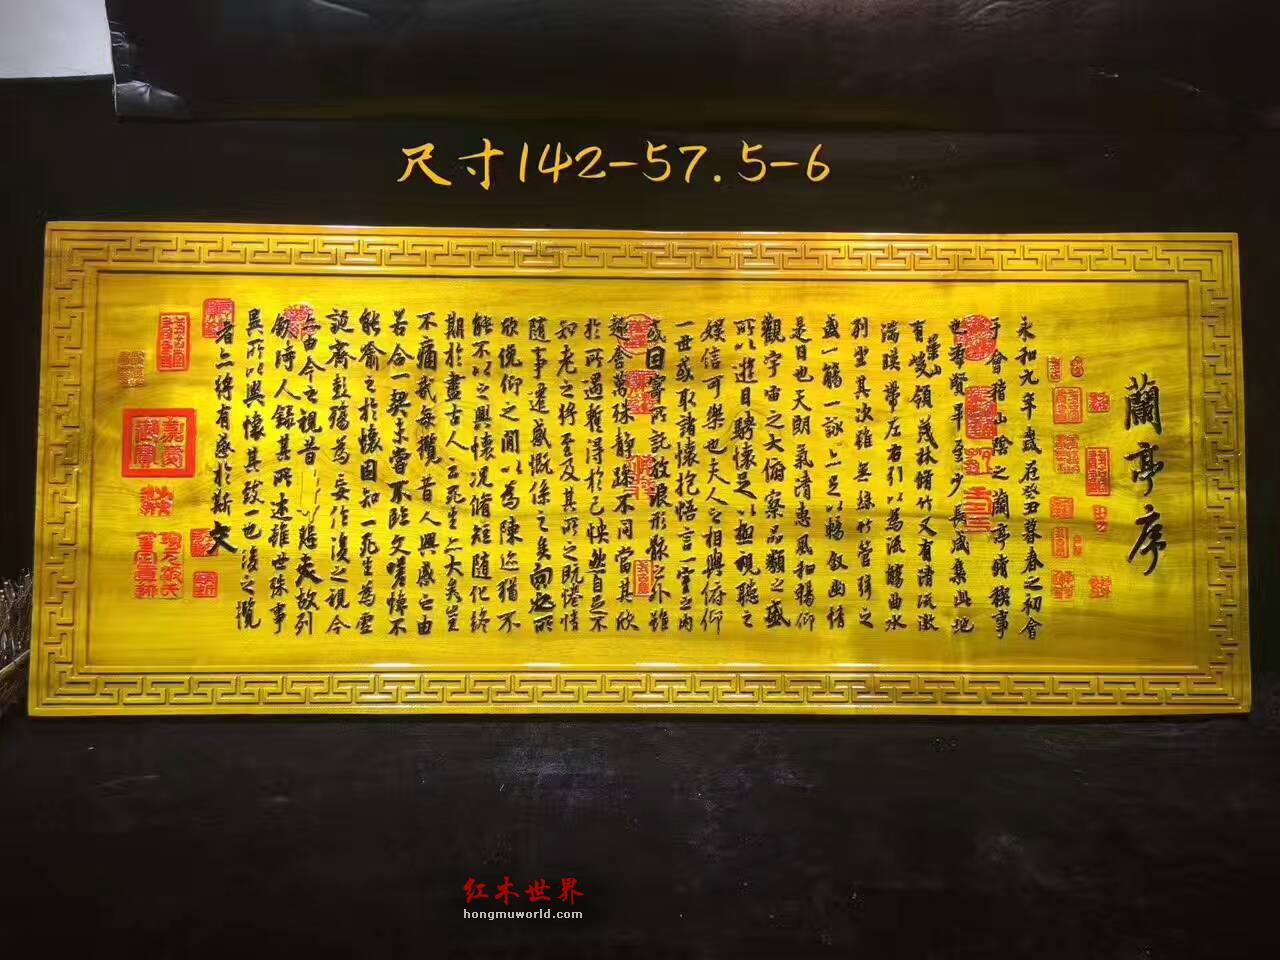 尺寸142-57.5-6
蘭亭序
永和九年歲在癸丑暮春之初會
于會稽山陰之蘭亭脩稧事
也羣賢畢至少長咸集此地
有崇山峻領茂林脩竹又有清流激
湍暎帶左右引以為流觴曲水
列坐其次雖無絲竹管弦之
盛一觴一詠亦足以暢敘幽情
是日也天朗氣清惠風和暢仰
觀宇宙之大俯察品類之盛
所以遊目騁懷足以極視聽之
娛信可樂也夫人之相與俯仰
一世或取諸懷抱悟言一室之內
或因寄所託放浪形骸之外雖
趣舍萬殊靜躁不同當其欣
於所遇暫得於己快然自足不
知老之將至及其所之既惓情
隨事遷感慨係之矣向之所
欣俛仰之閒以為陳迹猶不
能不以之興懷況脩短隨化終
期於盡古人云死生亦大矣豈
不痛哉每攬昔人興感之由
若合一契未嘗不臨文嗟悼不
能喻之於懷固知一死生為虛
誕齊彭殤為妄作後之視今
亦由今之視昔悲夫故列
敘時人錄其所述雖世殊事
異所以興懷其致一也後之攬
者亦將有感於斯文
红木世界
hongmuworld.com